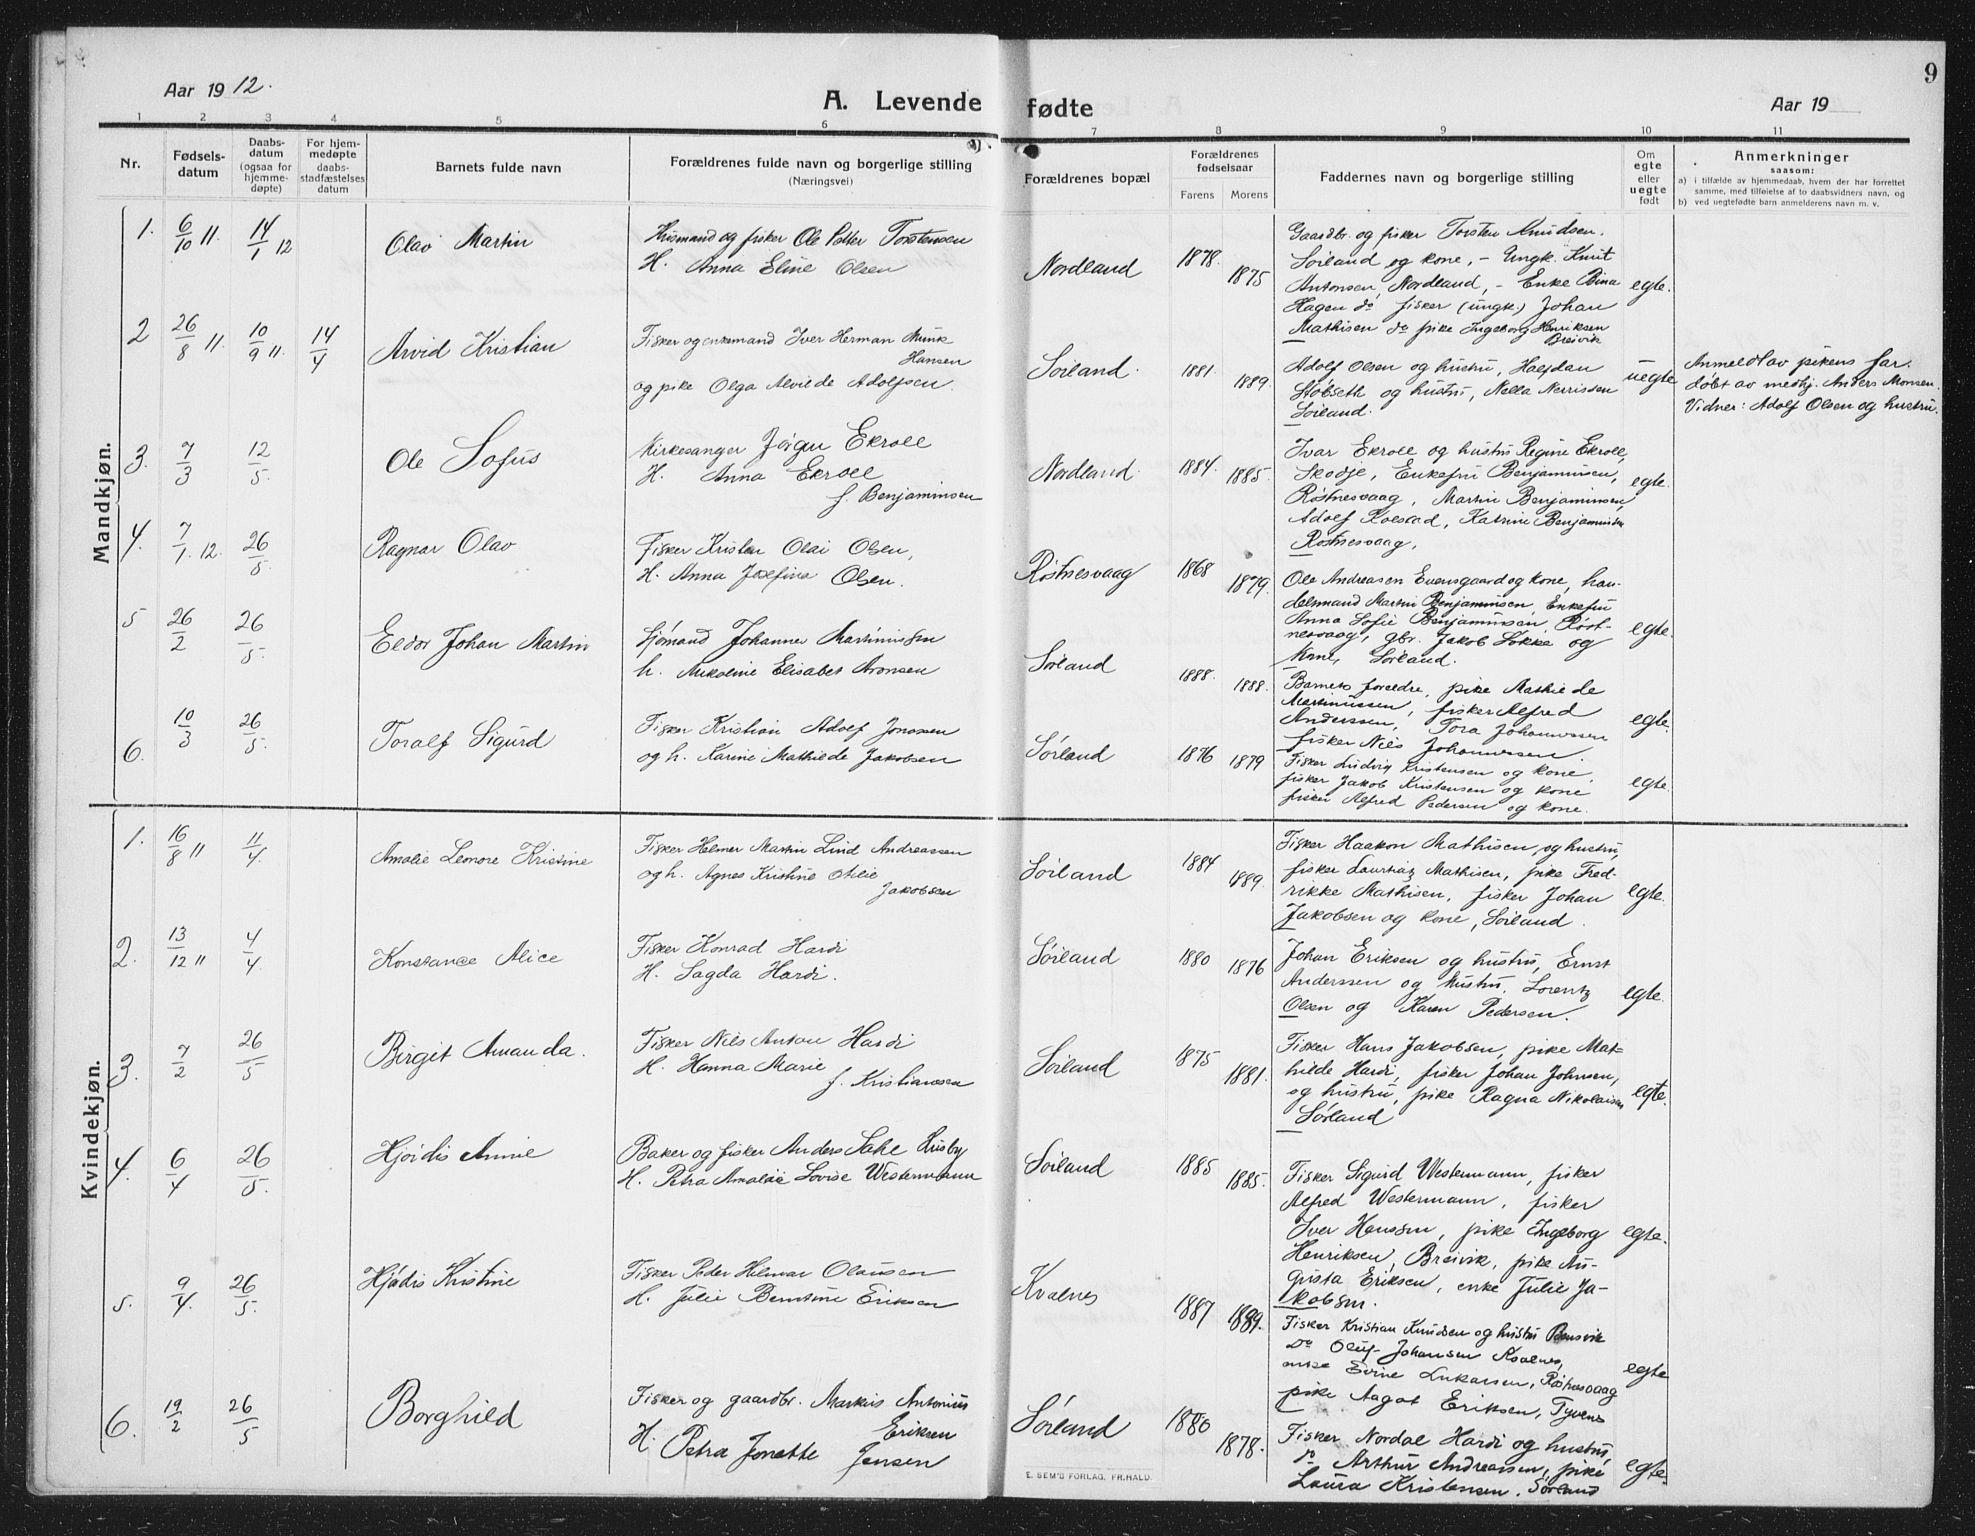 Aar 1912.
A. Levende fødte
Aar 19
9
1 2 3 4 5 6 7 8 9 10 11
Nr.
Fødsels-
datum
Daabs-
datum
(ogsaa for
hjemme-
døpte)
For hjem-
medøpte
daabs-
stadfæstelses
datum
Barnets fulde navn
Forældrenes fulde navn og borgerlige stilling
(Næringsvei)
Forældrenes bopæl
Forældrenes
fødselsaar
Farens Morens
Faddernes navn og borgerlige stilling
Om
egte
eller
uegte
født
Anmerkninger
saasom:
a) i tilfælde av hjemmedaab, hvem der har forrettet
samme, med tilføielse av to daabsvidners navn, og
b) ved uegtefødte barn anmelderens navn m. v.
Mandkjøn.
1. 6/10 11. 14/1 12 Olav Martin
Husmand og fisker Ole Petter Torstensen
H. Anna Eline Olsen
Nordland 1878. 1875
Gaardbr. og fisker Torsten Knudsen.
Sørland og kone, - Ungk. Knut
Antonsen, Nordland, - Enke Bina
Hagen do fisker (ungk.) Johan
Mathisen do pike Ingeborg Henriksen
Breivik
egte.
2 26/8 11. 10/9 11. 14/4 Arvid Kristian
Fisker og enkemand Iver Herman Munk
Hansen
og pike Olga Alvilde Adolfsen.
Sørland. 1881. 1889.
Adolf Olsen og hustru, Halfdan
Stobseth og hustru, Nella Nerrissen
Sørland.
uegte
Anmeldt av pikens far.
døbt av medhj. Anders Monsen.
Vidner: Adolf Olsen og hustru.
3. 7/3 12/5. Ole Sofus
Kirkesanger Jørgen Ekroll
H. Anna Ekroll
f. Benjaminsen
Nordland. 1884. 1885.
Ivar Ekroll og hustru Regine Ekroll,
Skodje, Enkefru Benjaminsen,
Røstnesvaag, Martin Benjaminsen,
Adolf Rolstad, Katrine Benjaminsen
Røstnesvaag.
egte.
4. 7/1. 12. 26/5. Ragnar Olav
Fisker Kristen Olai Olsen,
H. Anna Josefine Olsen.
Røstnesvaag 1868 1879.
Ole Andreasen Evensgaard og kone, han-
delsmand Martin Benjaminsen, Enkefru
Anna Sofie Benjaminsen Røst-
nesvaag, gbr. Jakob Løkke og
kone, Sørland.
egte.
5 26/2 26/5. Eldor Johan Martin
Sjømand Johannes Martinussen
h. Nikoline Elisabet Aronsen
Sørland 1888. 1888.
Barnets forældre, pike Mathilde
Martinussen, fisker Alfred
Anderssen, Tora Johannessen
fisker Nils Johannessen.
egte.
6. 10/3 26/5. Toralf Sigurd
Fisker Kristian Adolf Jonassen
og h. Karine Mathilde Jakobsen
Sørland 1876 1879
Fisker Ludvig Kristensen og kone,
fisker Jakob Kristensen og kone
fisker Alfred Pedersen og kone.
egte.
Kvindekjøn.
1. 16/8 11 11/4. Amalie Leonore Kristine
Fisker Helmer Martin Lind Andreassen
og h. Agnes Kristine Otelie
Jakobsen
Sørland 1884 1889.
Fisker Haakon Mathisen, og hustru,
fisker Lauritz Mathisen, pike Fred-
rikke Mathisen, fisker Johan
Jakobsen og kone, Sørland.
egte.
2. 13/12 11 4/4. Konstance Alice
Fisker Konrad Hardi
H. Sagda Hardi.
Sørland 1880 1876
Johan Eriksen og hustru, Ernst
Anderssen og hustru, Lorentz
Olsen og Karen Pedersen.
egte.
3. 7/2 26/5 Birgit Amanda.
Fisker Nils Anton Hardi
H. Hanna Marie
f. Kristiansen
Sørland 1875 1881.
Fisker Hans Jakobsen, pike Mat-
hilde Hardi, fisker Johan Johnsen,
og hustru, pike Ragna Nikolaisen
Sørland
egte.
4. 6/4 26/5. Hjørdis Annie
Baker og fisker Anders Sahl Husby
H. Petra Amalie Lovise Westermann
Sørland 1885 1885.
Fisker Sigurd Westermann, fisker
Alfred Westermann, fisker
Iver Hanssen, pike Ingeborg
Henriksen, Breivik, pike Au-
gusta Eriksen, enke Julie Ja-
kobsen.
egte.
5. 9/4. 26/5. Hjødis Kristine
Fisker Peder Hilmar Olaussen
H. Julie Berntine Eriksen
Kvalnes 1887 1889.
Fisker Kristian Knudsen og hustru
Do Oluf Johansen Kvalnes,
enke Evine Lukassen, Røstnesvaag
pike Aagot Eriksen, Tyvenes
egte
6. 19/2 26/5 Borghild
Fisker og gaardbr. Markus Antonius
Eriksen
H. Petra Jonette Jensen
Sørland 1880 1878.
Fisker Nordal Hardi og hustru,
Arthur Andreassen, pike
Laura Kristensen. Sørland
egte.
E. SEM'S FORLAG, FR.HALD.